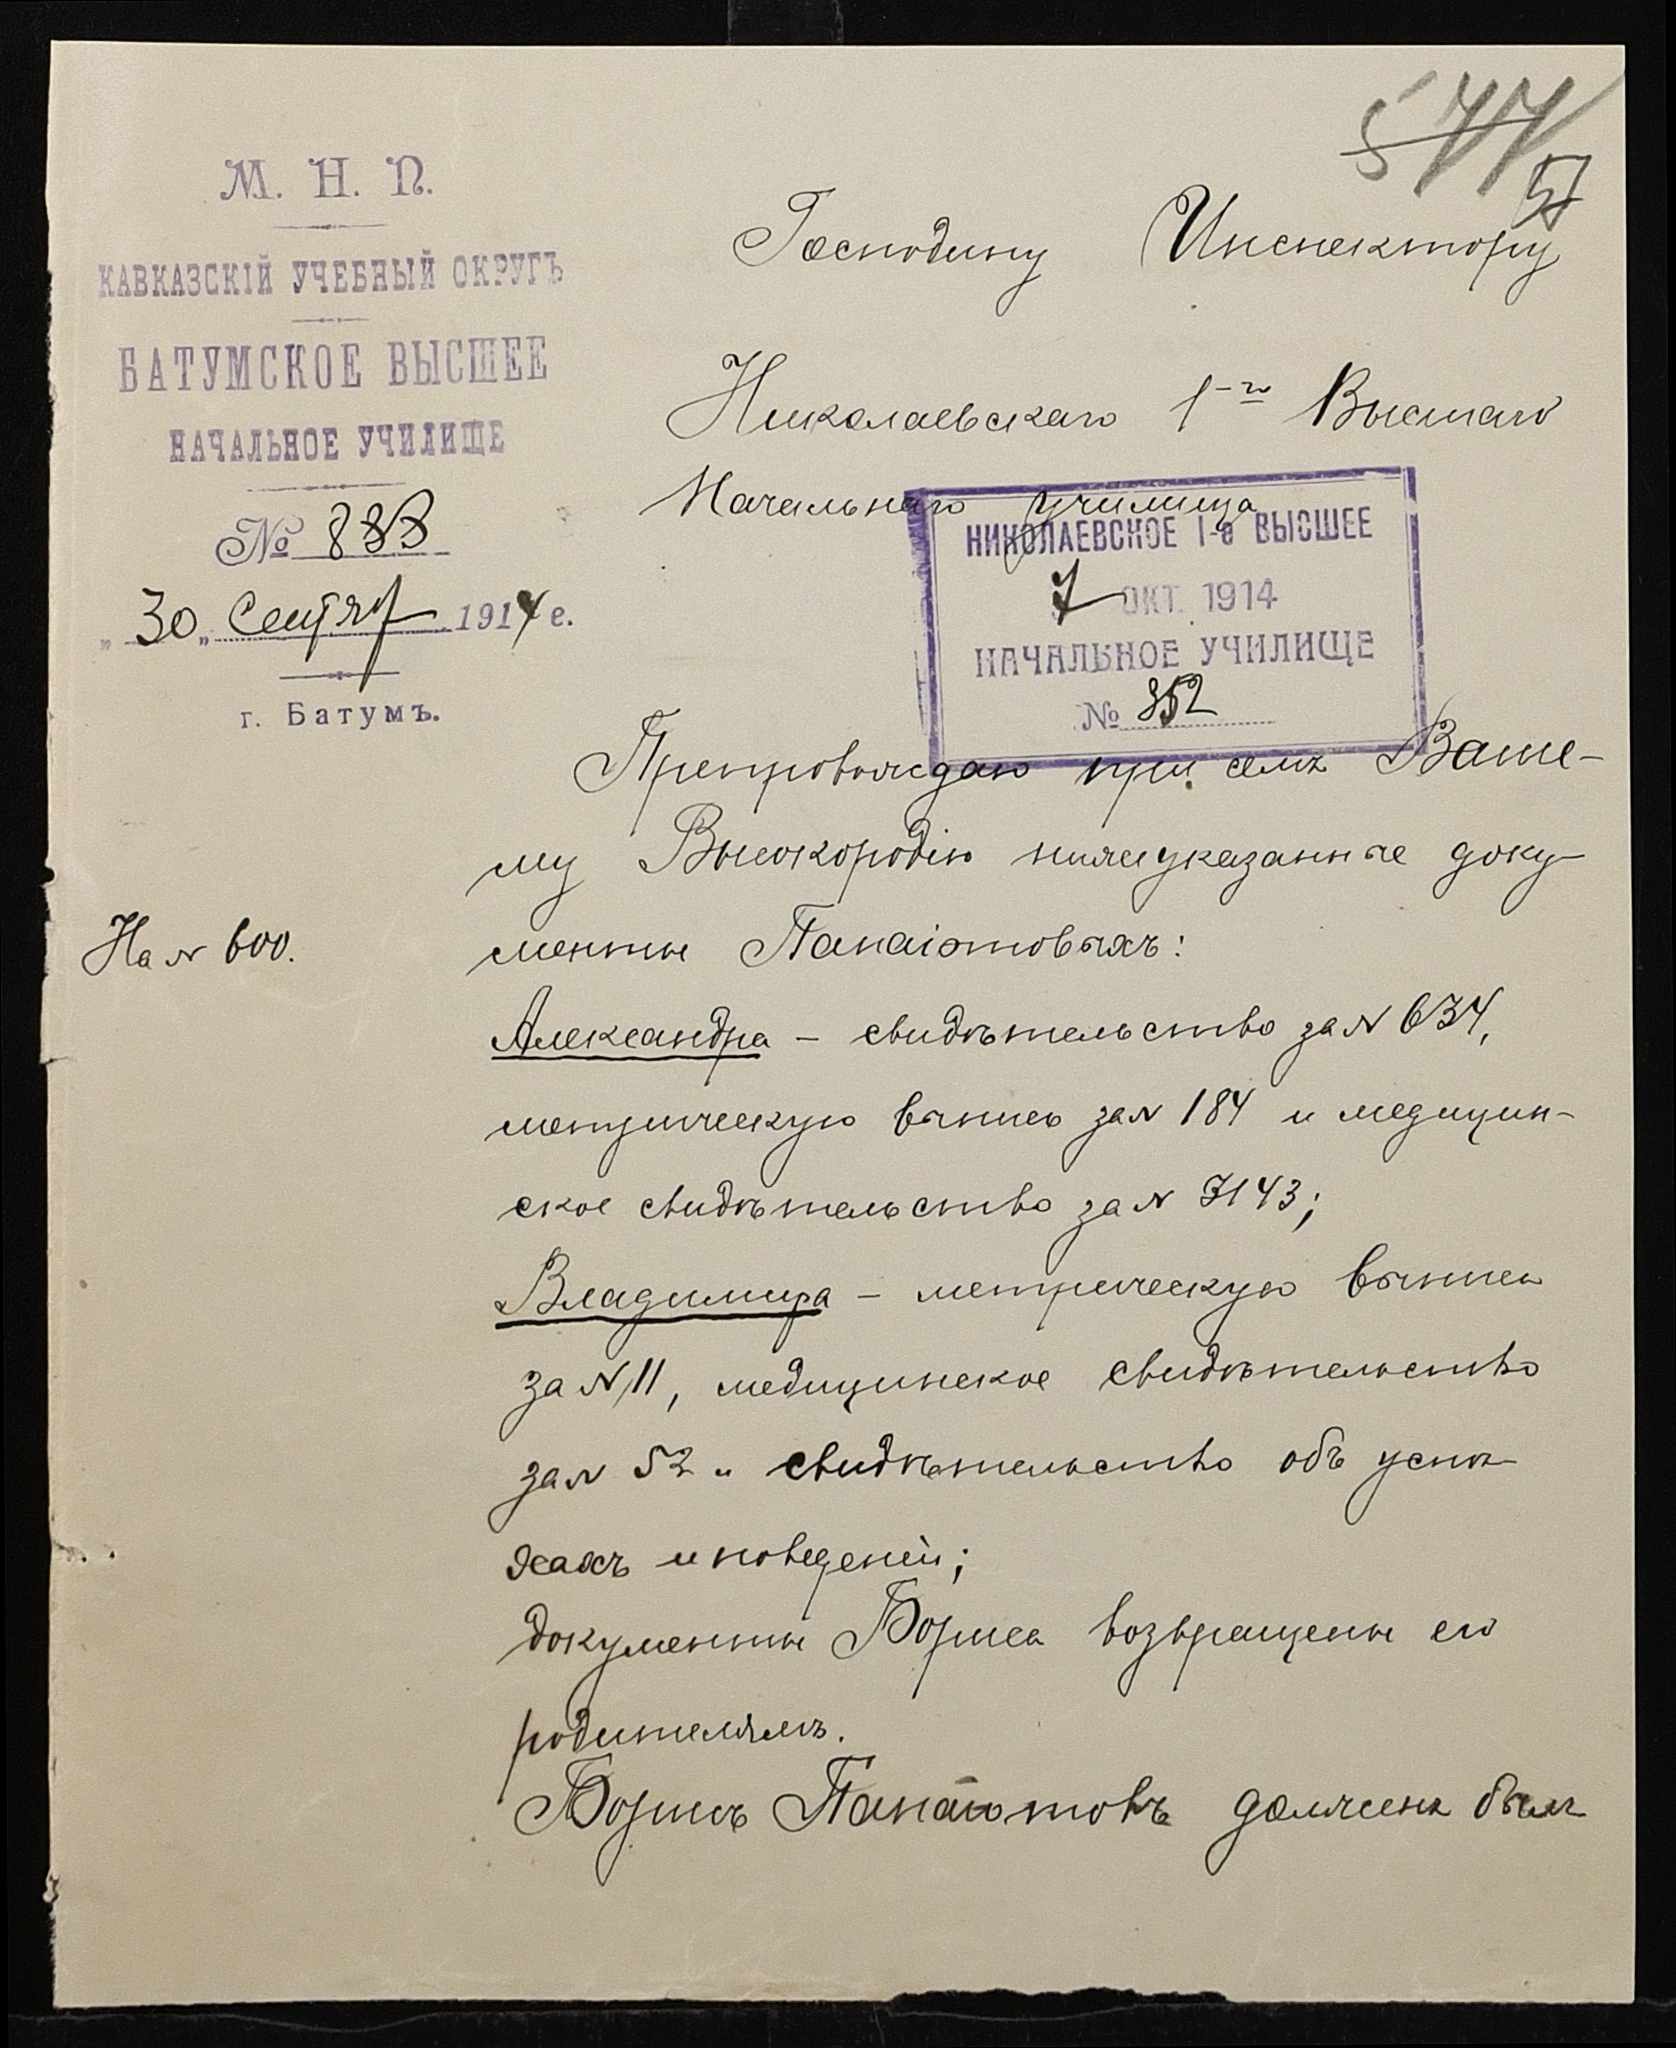 577
57
М. Н. П.
КАВКАЗСКІЙ УЧЕБНЫЙ ОКРУГЪ
БАТУМСКОЕ ВЫСШЕЕ
НАЧАЛЬНОЕ УЧИЛИЩЕ
№ 888
„30„ Сентяб 1914 г.
г. Батумъ.
Господину Инспектору
Николаевскаго 1-го Высшаго
Начальнаго училища
НИКОЛАЕВСКОЕ 1-е ВЫСШЕЕ
7 ОКТ. 1914
НАЧАЛЬНОЕ УЧИЛИЩЕ
№ 852
Препровождаю при семъ Ваше-
му Высокородію нижеуказанные доку-
На № 600.
менты Панаіотовыхъ:
Александра – свидѣтельство за № 634,
метрическую выпись за № 184 и медицин-
ское свидѣтельство за № 7143;
Владимира – метрическую выпись
за № 11, медицинское свидѣтельство
за № 52 и свидѣтельство объ успѣ-
хахъ и поведеніи;
документы Бориса возвращены его
родителямъ.
Борисъ Панаіотовъ долженъ былъ